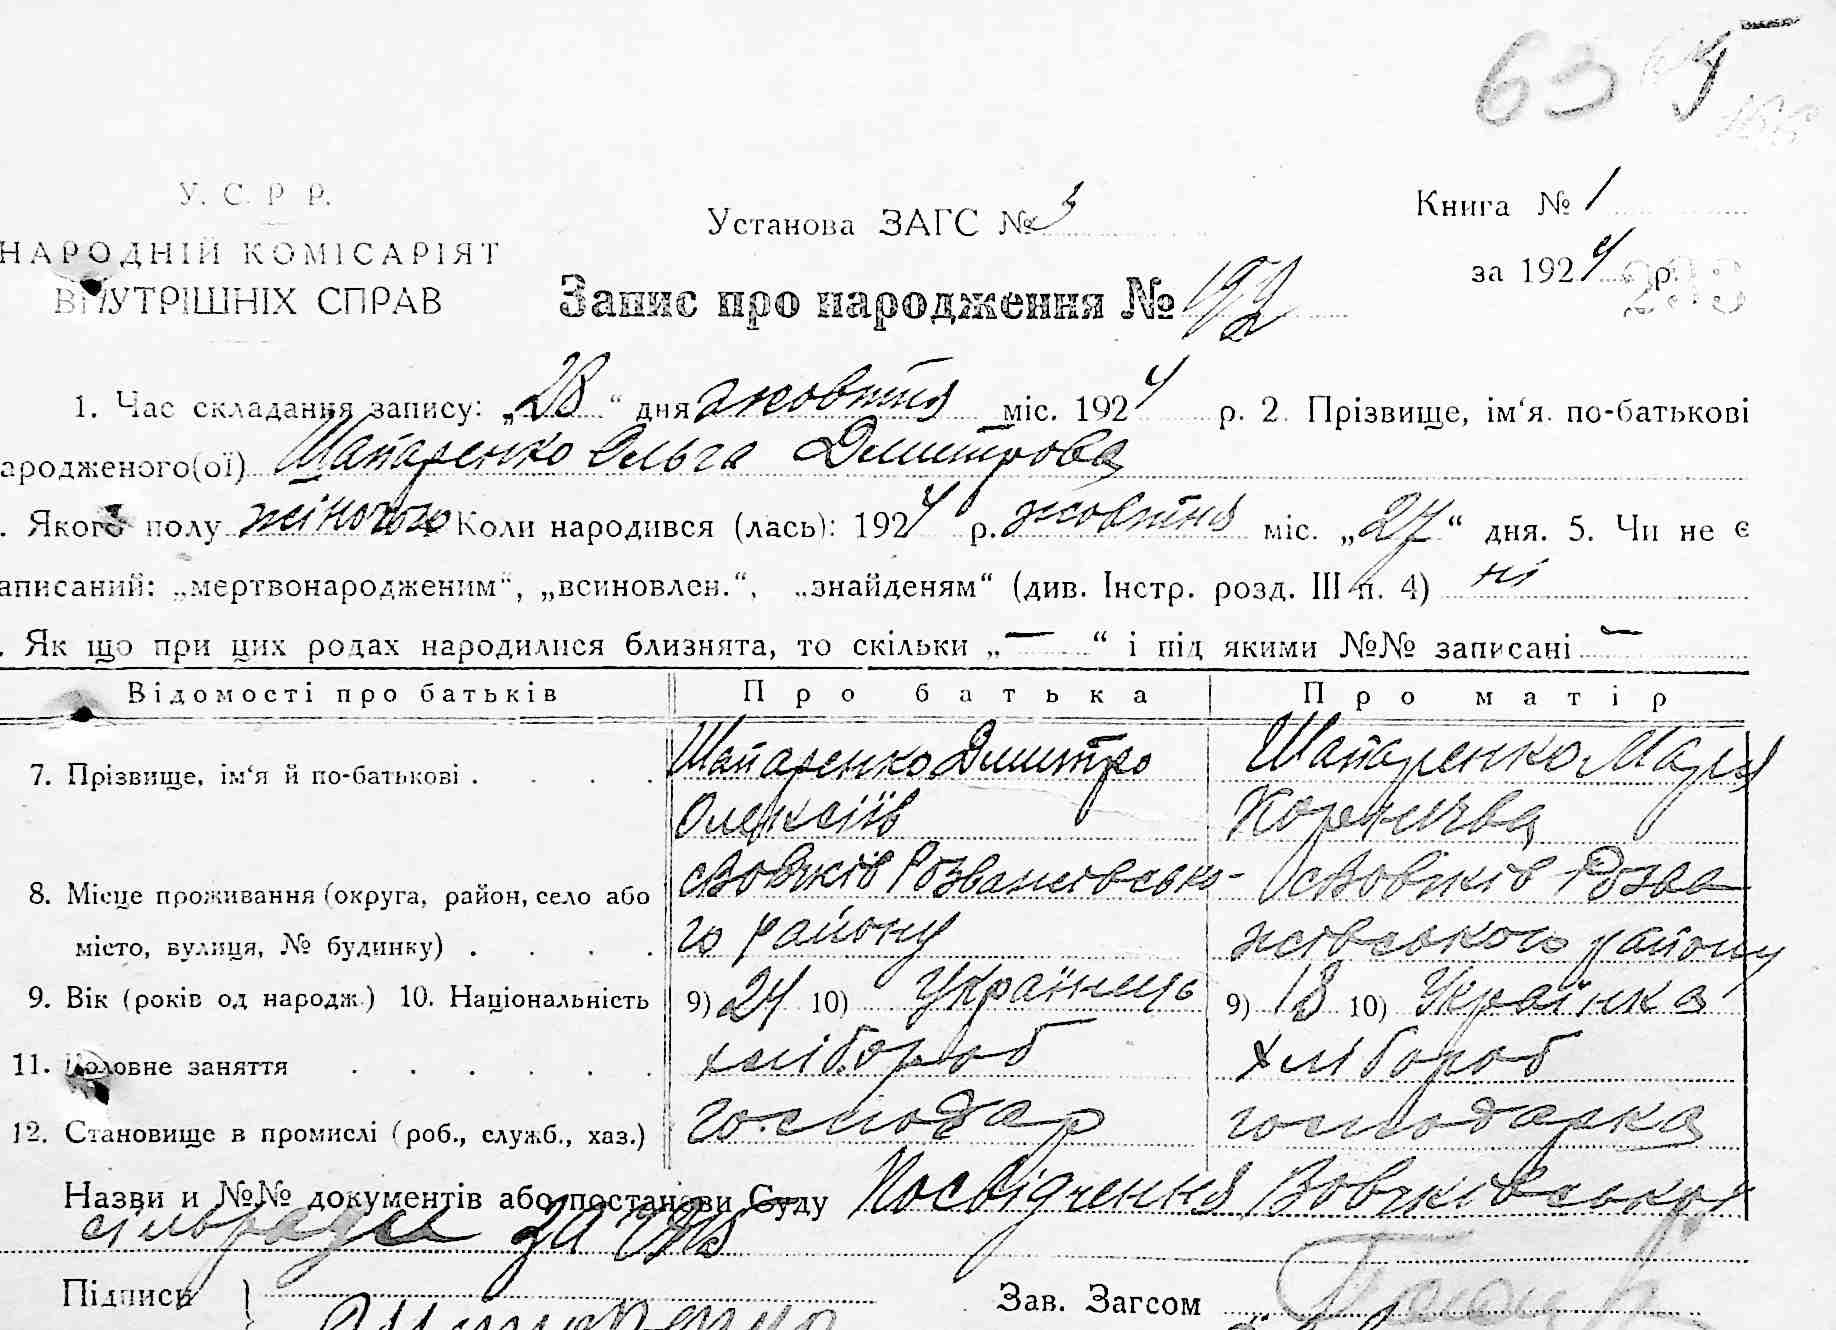 63
У. С. Р Р.
Установа ЗАГС № 3
Книга № 1
НАРОДНІЙ КОМІСАРІЯТ
ВНУТРІШНІХ СПРАВ
за 1924 р.
Запис про народження № 192
1. Час складання запису: „28“ дня жовтня міс. 1924 р. 2. Прізвище, ім‘я по-батькові
ародженого(ої) Шапаренко Ольга Дмитрова
. Якого полу жіночого Коли народився (лась): 1924 р. жовтня міс. „27“ дня. 5. Чи не є
аписаний: „мертвонародженим“, „всиновлен.“, „знайденям“ (див. Інстр. розд. III п. 4) ні
. Як що при цих родах народилися близнята, то скільки „—“ і під якими №№ записані —
Відомості про батьків Про батька Про матір
7. Прізвище, ім‘я й по-батькові . . . . Шапаренко Дмитро Шапаренко Марія
Олексіїв
8. Місце проживання (округа, район, село або с Вовчків Розважівсько- с Вовчків Розва
місто, вулиця, № будинку) . . . . го району жівського району
9. Вік (років од народж.) 10. Національність 9) 24 10) Українець 9) 18 10) Українка
11. Головне заняття . . . . . . хлібороб хлібороб
12. Становище в промислі (роб., служб., хаз.) господар господарка
Назви и №№ документів або постанови Суду Посвідчення Вовчківської
сільради за №
Підписи
Зав. Загсом